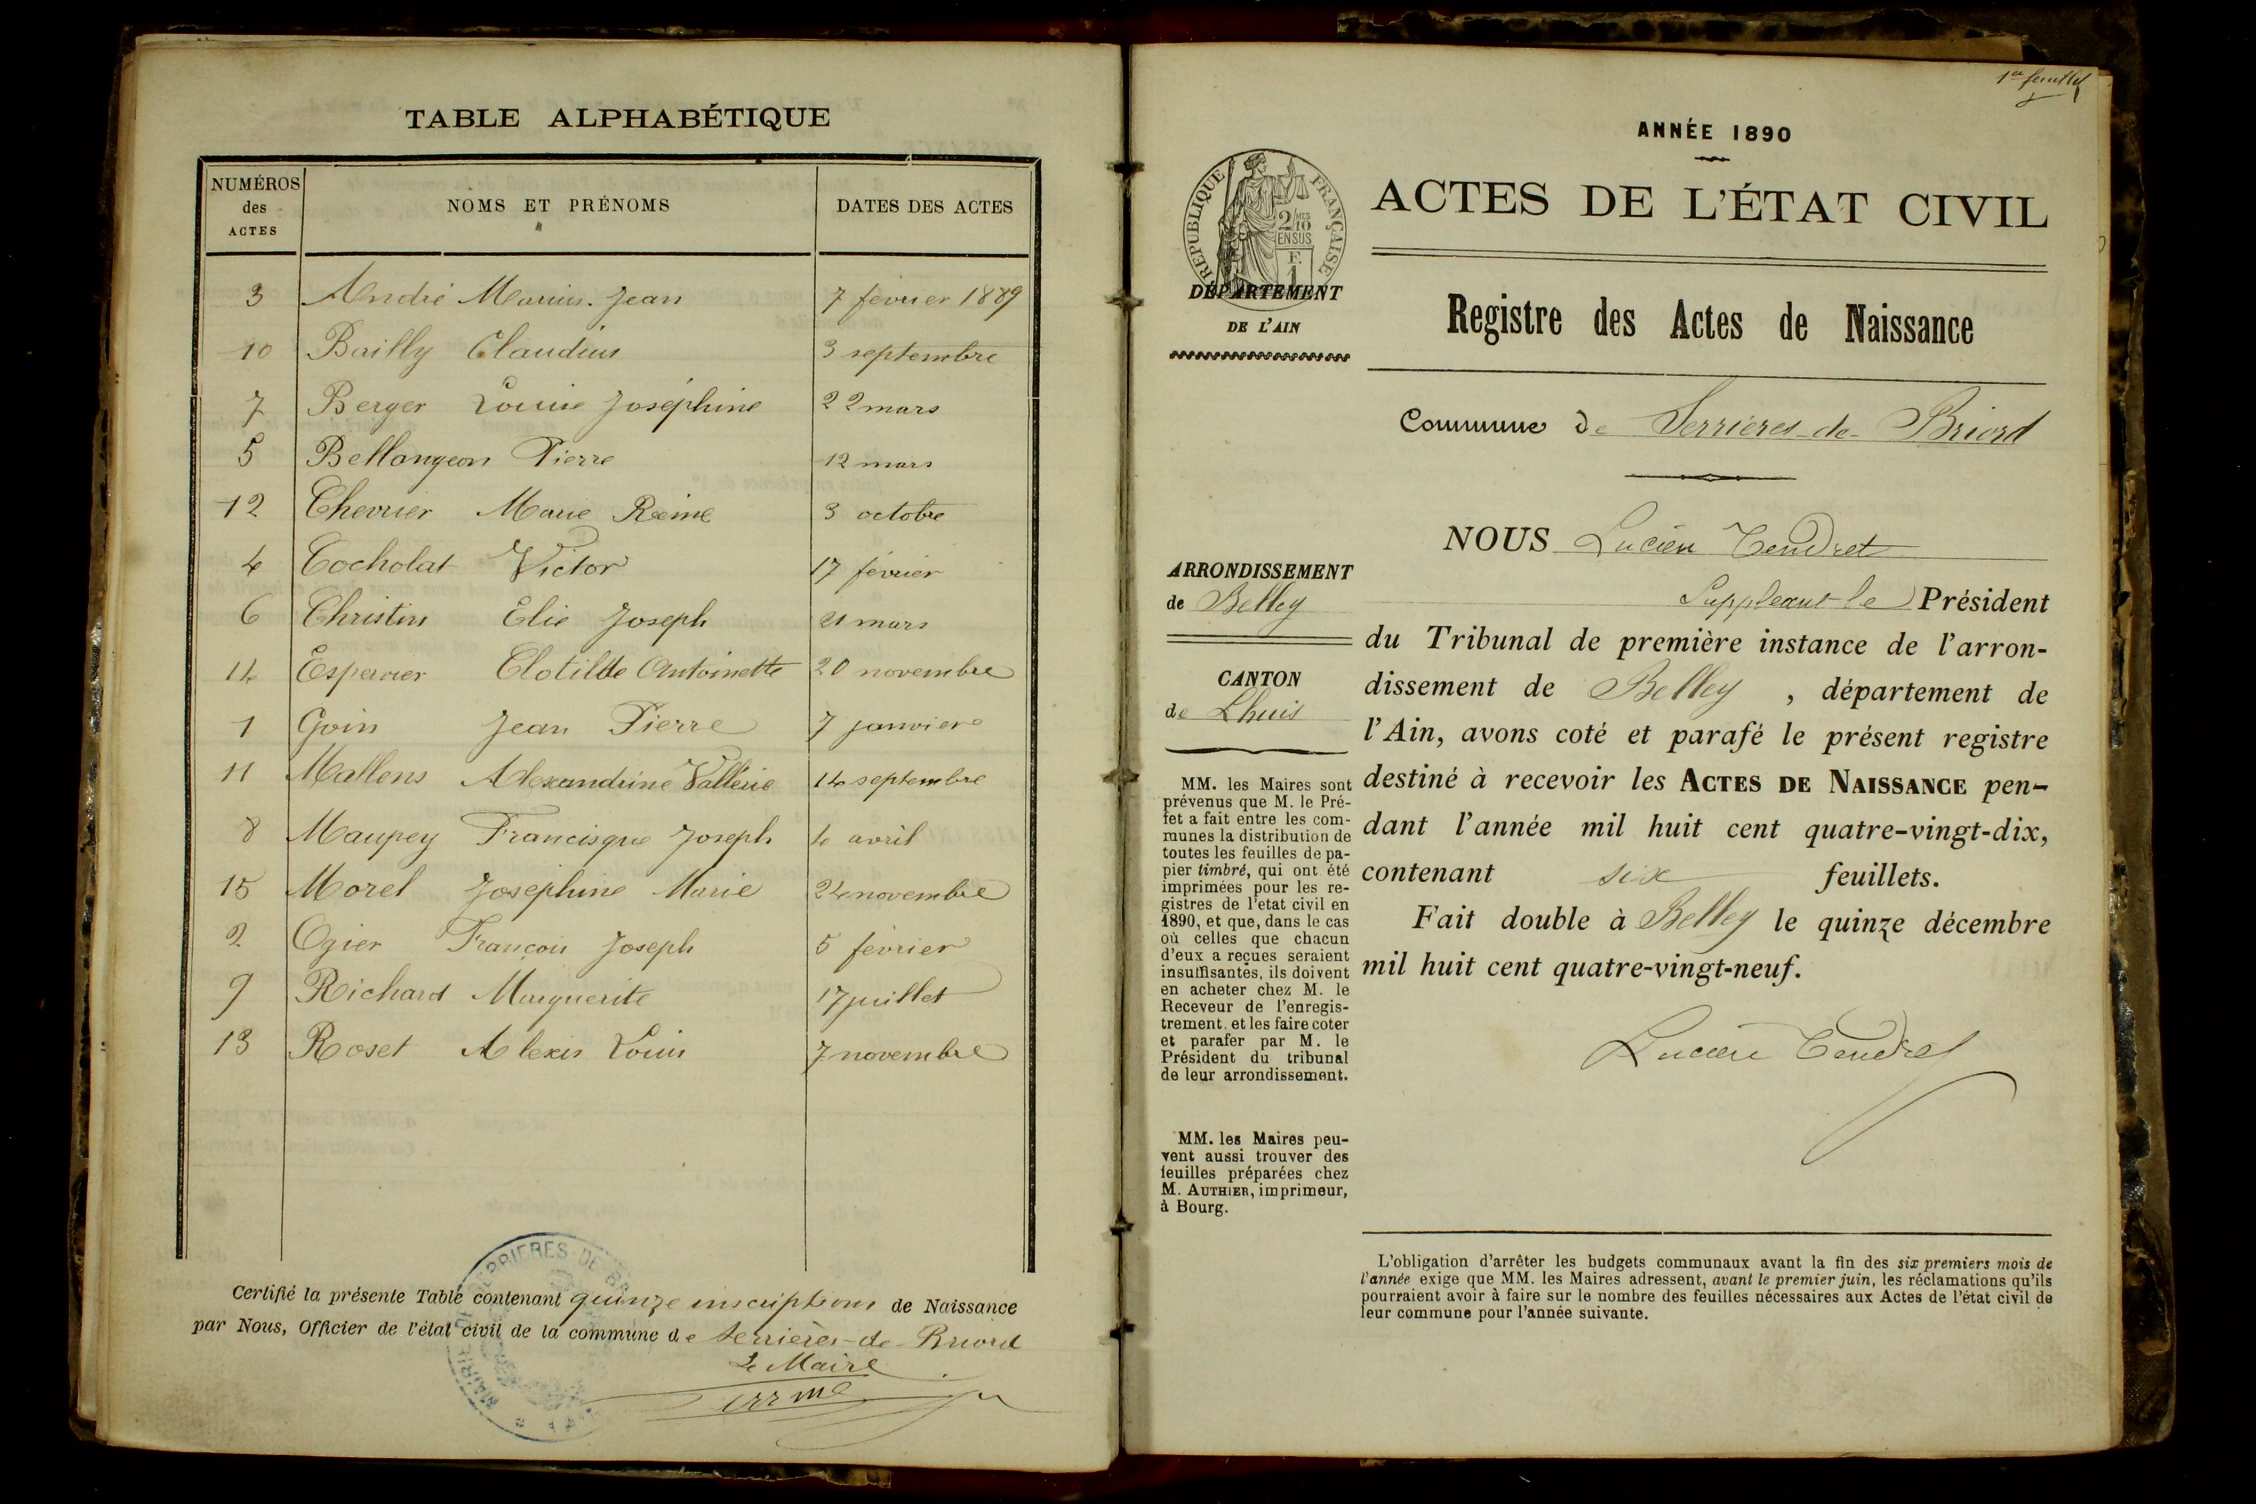 TABLE ALPHABÉTIQUE
NUMÉROS des ACTES NOMS ET PRÉNOMS DATES DES ACTES
3 André Marius Jean 7 février 1889
10 Bailly Claudius 3 septembre
7 Berger Louise Joséphine 22 mars
5 Bellongeon Pierre 12 mars
12 Chevrier Marie Reine 3 octobre
4 Cocholat Victor 17 février
6 Christin Elie Joseph 21 mars
14 Espervier Clotilde Antoinette 20 novembre
1 Goin Jean Pierre 7 janvier
11 Mallens Alexandrine Vallérie 14 septembre
8 Maupey Francisque Joseph 4 avril
15 Morel Joséphine Marie 24 novembre
2 Ogier François Joseph 5 février
9 Richard Marguerite 17 juillet
13 Roset Alexis Louis 7 novembre
Certifié la présente Table contenant quinze inscriptions de Naissance
par Nous, Officier de l'état civil de la commune de Serrières-de-Briord
Le Maire
1er feuillet
ANNÉE 1890
RÉPUBLIQUE FRANÇAISE
2/10 EN SUS
F. 1
ACTES DE L'ÉTAT CIVIL
DÉPARTEMENT
DE L'AIN
Registre des Actes de Naissance
Commune de Serrières-de-Briord
ARRONDISSEMENT
de Belley
CANTON
de Lhuis
MM. les Maires sont
prévenus que M. le Pré-
fet a fait entre les com-
munes la distribution de
toutes les feuilles de pa-
pier timbré, qui ont été
imprimées pour les re-
gistres de l'etat civil en
1890, et que, dans le cas
où celles que chacun
d'eux a reçues seraient
insuffisantes, ils doivent
en acheter chez M. le
Receveur de l'enregis-
trement et les faire coter
et parafer par M. le
Président du tribunal
de leur arrondissement.
MM. les Maires peu-
vent aussi trouver des
feuilles préparées chez
M. AUTHIER, imprimeur,
à Bourg.
NOUS Lucien Tendret
Suppléant le Président
du Tribunal de première instance de l'arron-
dissement de Belley, département de
l'Ain, avons coté et parafé le présent registre
destiné à recevoir les ACTES DE NAISSANCE pen-
dant l'année mil huit cent quatre-vingt-dix,
contenant six feuillets.
Fait double à Belley le quinze décembre
mil huit cent quatre-vingt-neuf.
Lucien Tendret
L'obligation d'arrêter les budgets communaux avant la fin des six premiers mois de
l'année exige que MM. les Maires adressent, avant le premier juin, les réclamations qu'ils
pourraient avoir à faire sur le nombre des feuilles nécessaires aux Actes de l'état civil de
leur commune pour l'année suivante.